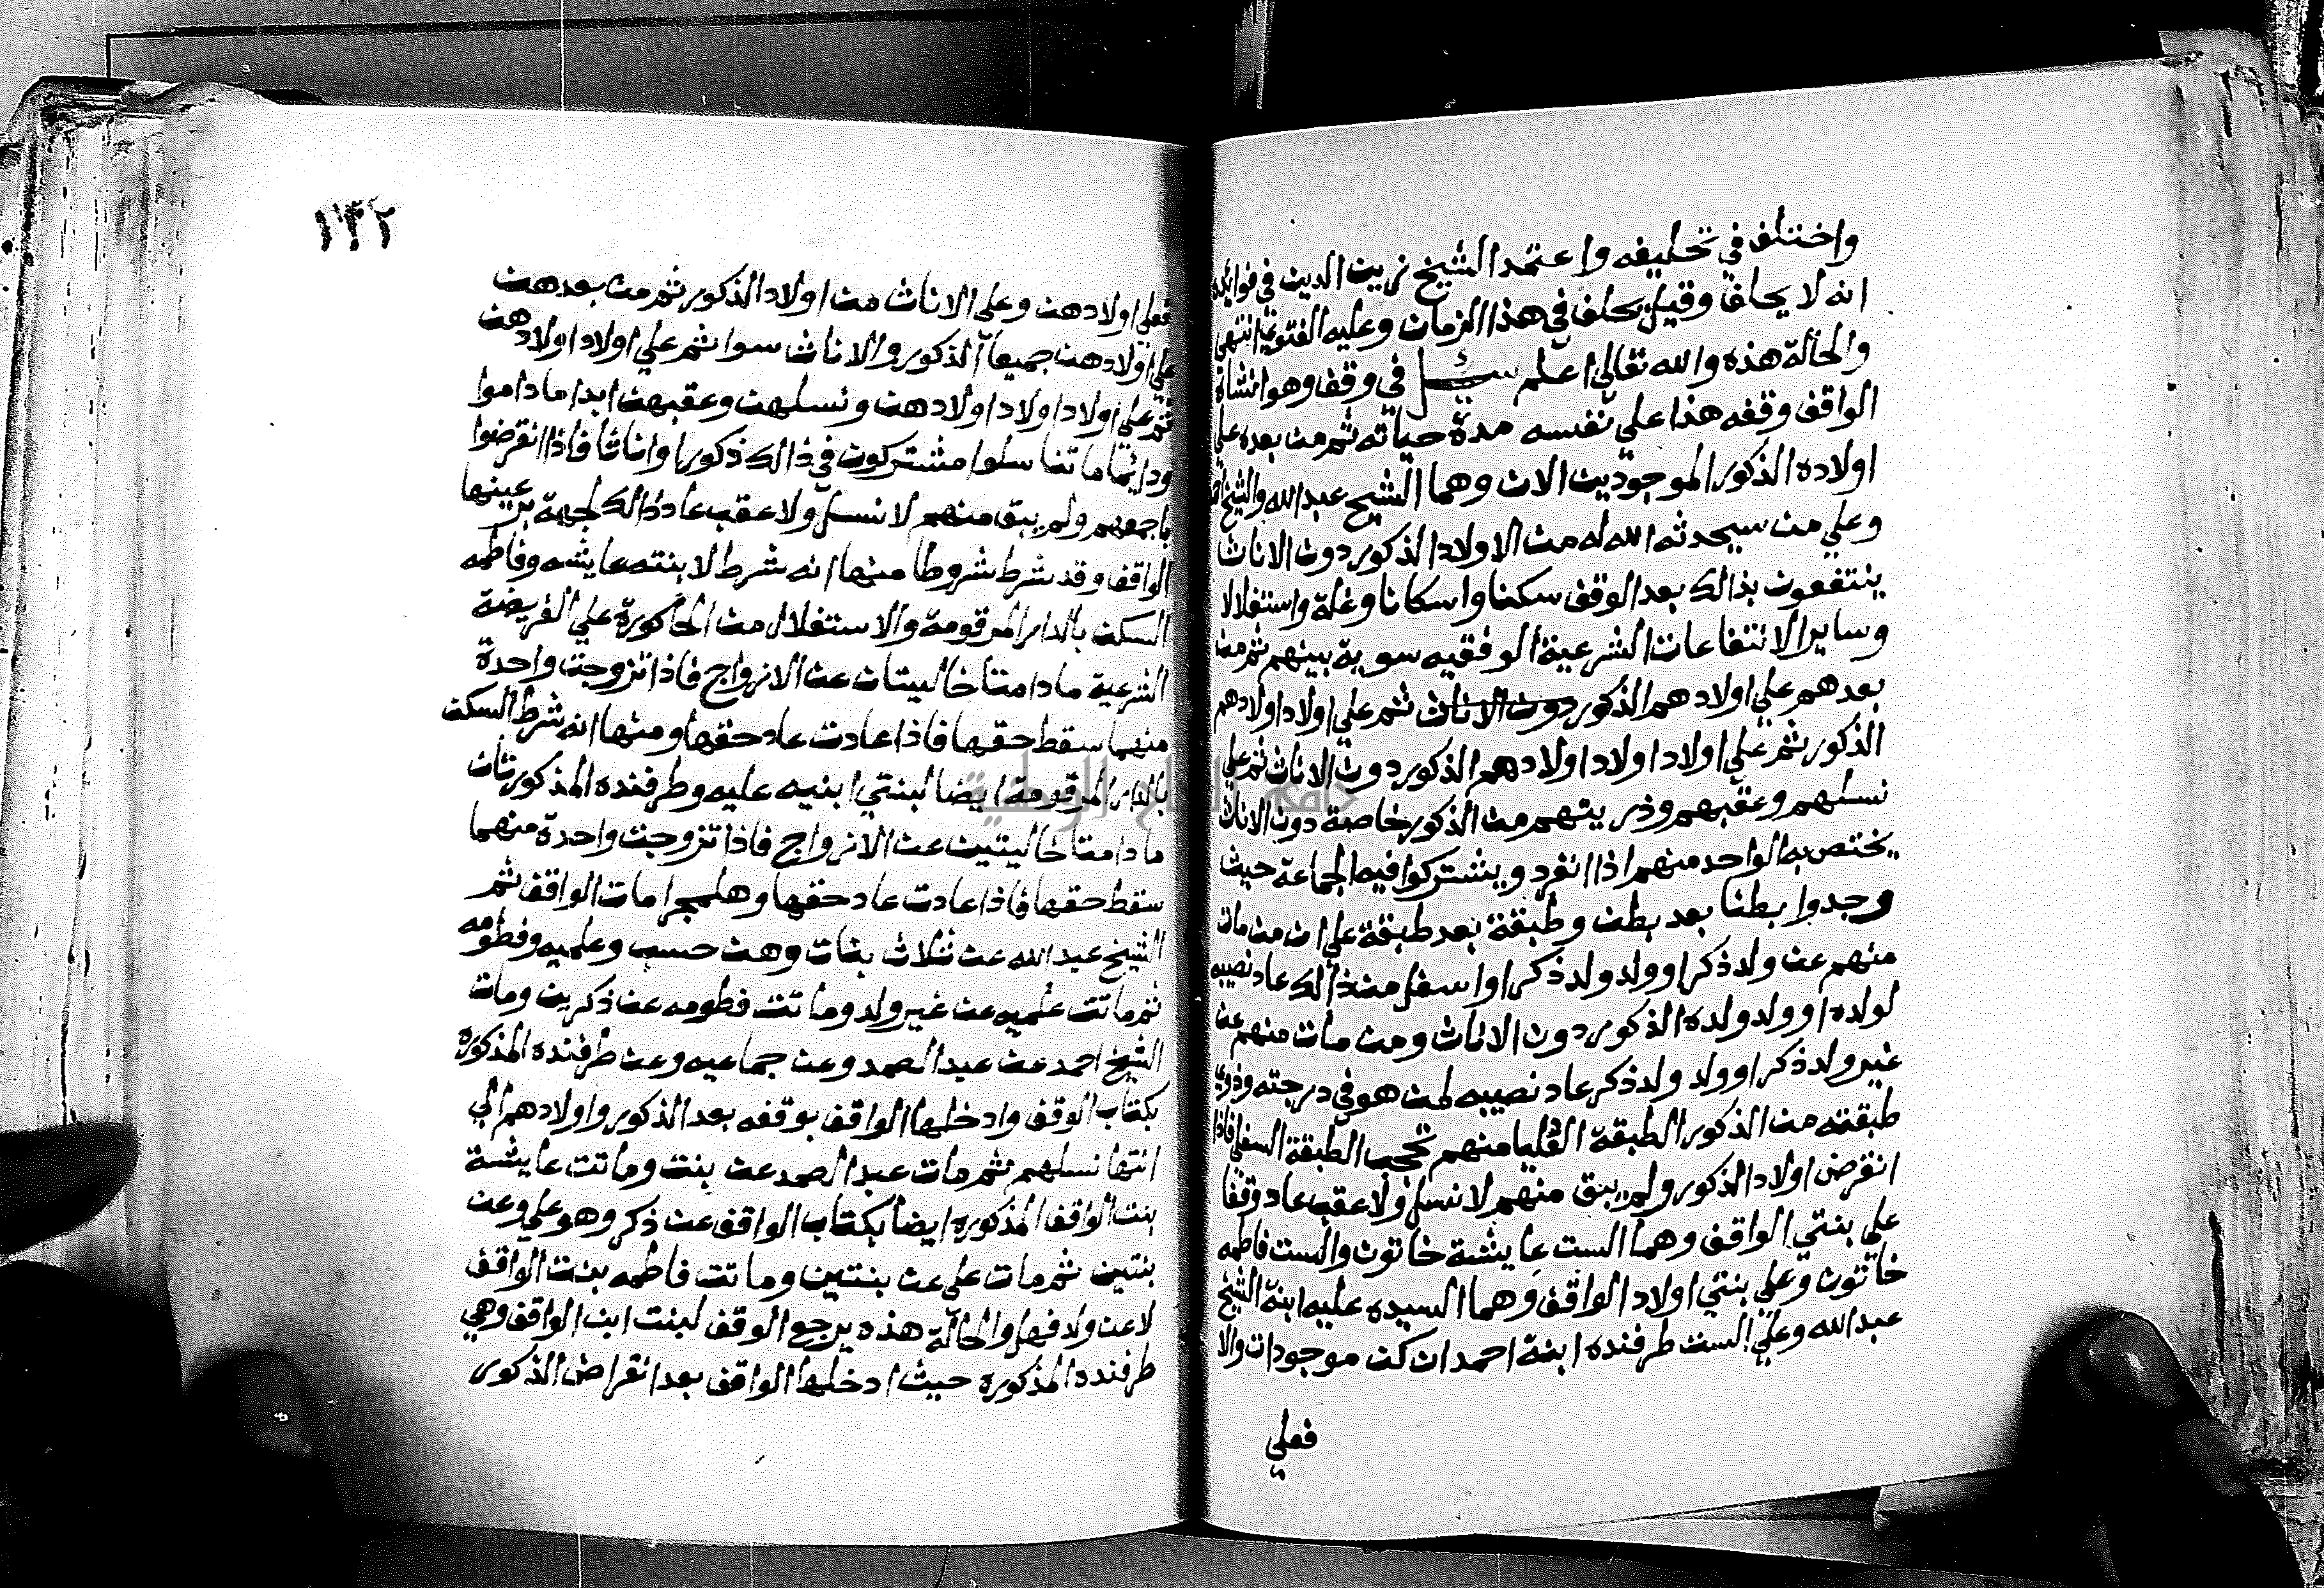 واختلف في تحليفه واعتمد الشيخ زين الدين في فوائده
انه لا يحلف وقيل يحلف في هذا الزمان وعليه الفتوي انتهي
والحالة هذه والله تعالي اعلم سئل في وقف وهو انشاء
الواقف وقفه هذا علي نفسه مدة حياته ثم من بعده علي
اولاده الذكور الموجودين الان وهما الشيخ عبد الله والشيخ احمد
وعلي من سيحدثه الله له من الاولاد الذكور دون الاناث
ينتفعون بذالك بعد الوقف سكنا واسكانا وغلة واستغلالا
وساير الانتفاعات الشرعية الوقفيه سوية بينهم ثم من
بعدهم علي اولادهم الذكور دون الاناث ثم علي اولاد اولادهم
الذكور ثم علي اولاد اولاد اولادهم الذكور دون الاناث ثم علي
نسلهم وعقبهم وذريتهم من الذكور خاصة دون الاناث
يختص به الواحد منهم اذا انفرد ويشتركوا فيه الجماعة حيث
وجدوا بطنا بعد بطن وطبقة بعد طبقة علي ان من مات
منهم عن ولد ذكر او ولد ولد ذكر او اسفل من ذالك عاد نصيبه
لولده او ولد ولده الذكور دون الاناث ومن مات منهم عن
غير ولد ذكر او ولد ولد ذكر عاد نصيبه لمن هو في درجته وذوي
طبقته من الذكور الطبقة العليا منهم تحجب الطبقة السفلي فاذا
انقرض اولاد الذكور ولم يبق منهم لا نسل ولا عقب عاد وقفا
علي بنتي الواقف وهما الست عايشة خاتون والست فاطمه
خاتون وعلي بنتي اولاد الواقف وهما السيده عليه ابنة الشيخ
عبد الله وعلي الست طرفنده ابنة احمد ان كن موجودات والا
فعلي
١٣٢
فعلي اولادهن وعلي الاناث من اولاد الذكور ثم من بعدهن
علي اولادهن جميعا الذكور والاناث سوا ثم علي اولاد اولادهن
ثم علي اولاد اولاد اولادهن ونسلهن وعقبهن ابدا ما داموا
ودايما ما تناسلوا مشتركون في ذالك ذكورا واناثا فاذا انقرضوا
باجمعهم ولم يبق منهم لا نسل ولا عقب عاد ذالك لجهة بر عينها
الواقف وقد شرط شروطا منها انه شرط لابنته عايشه وفاطمه
السكن بالدار المرقومة والاستغلال من الحاكورة علي الفريضة
الشرعية ما دامتا خاليتان عن الازواج فاذا تزوجت واحدة
منهما سقط حقها فاذا عادت عاد حقها ومنها انه شرط السكن
بالدار المرقومة ايضا لبنتي ابنيه عليه وطرفنده المذكورتان
ما دامتا خاليتين عن الازواج فاذا تزوجت واحدة منهما
سقط حقها فاذا عادت عاد حقها وهلم جرا مات الواقف ثم
الشيخ عبد الله عن ثلاث بنات وهن حسب وعلميه وفطومه
ثم ماتت علميه عن غير ولد وماتت فطومه عن ذكرين ومات
الشيخ احمد عن عبد الصمد وعن جماعيه وعن طرفنده المذكوره
بكتاب الوقف وادخلها الواقف بوقفه بعد الذكور واولادهم الي
انتها نسلهم ثم مات عبد الصمد عن بنت وماتت عايشة
بنت الواقف المذكوره ايضا بكتاب الواقف عن ذكر وهو علي وعن
بنتين ثم مات علي عن بنتين وماتت فاطمه بنت الواقف
لا عن ولد فهل والحالة هذه يرجع الوقف لبنت ابن الواقف وهي
طرفنده المذكوره حيث ادخلها الواقف بعد انقراض الذكور